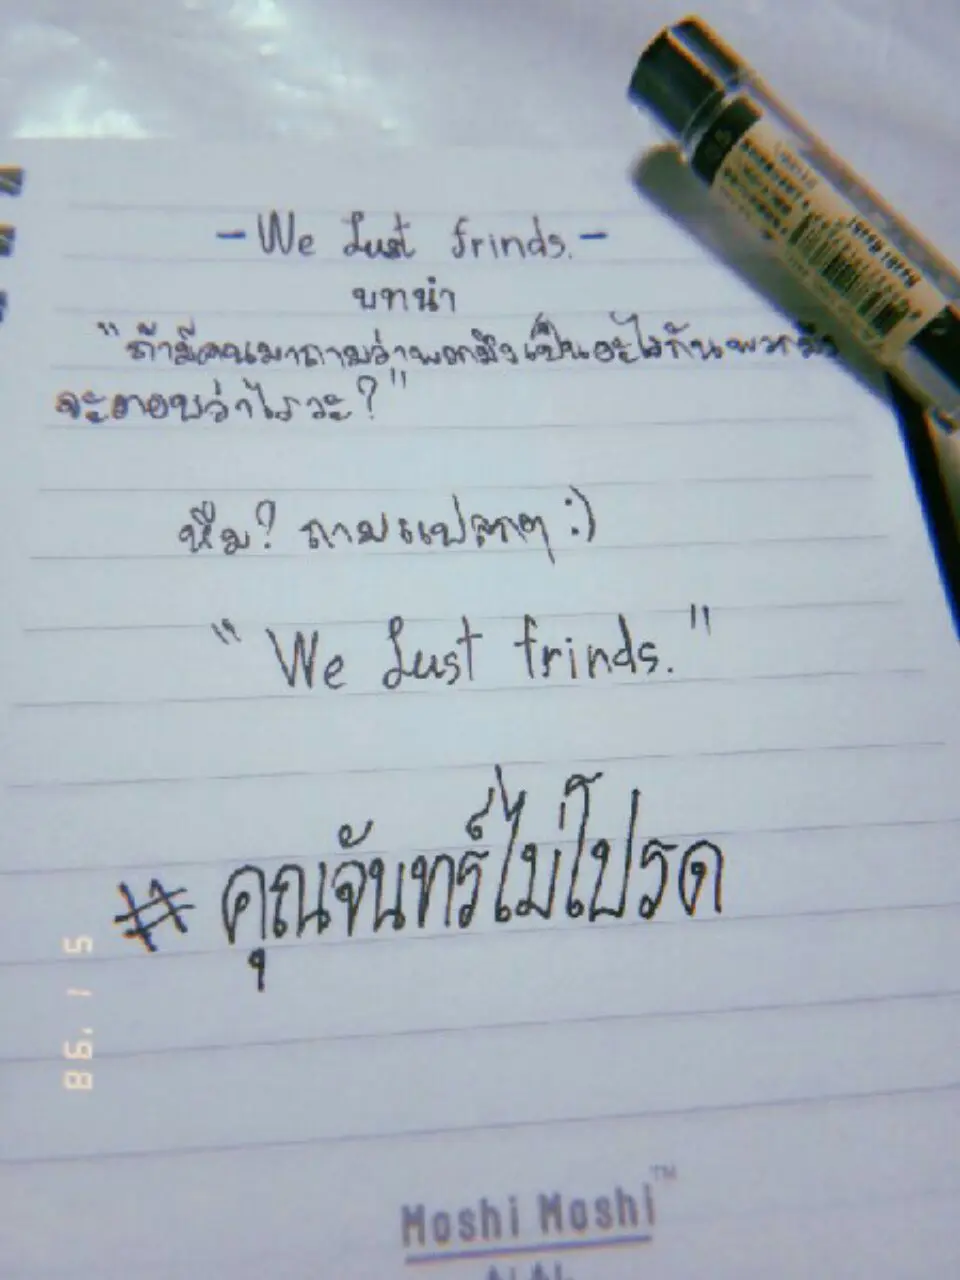 - We Just frinds. -
บทนำ
"ถ้ามีคนมาถามว่าพวกมึงเป็นอะไรกันพวกมึง
จะตอบว่าไรวะ?"
หืม? ถามแปลกๆ :)
"We Just frinds."
# คุณจันทร์ไม่โปรด
Moshi Moshi™
98.' 1 5